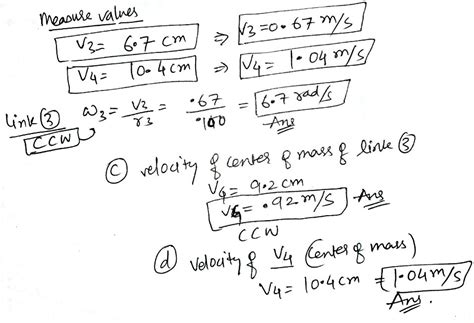 Measure values
V3 = 6.7 cm ⇒ V3 = 0.67 m/s
V4 = 10.4 cm ⇒ V4 = 1.04 m/s
Link ③ ω3 = V3/r3 = .67/.100 = 6.7 rad/s
CCW Ans
ⓒ velocity of center of mass of link ③
VG = 9.2 cm
VG = .92 m/s Ans
CCW
ⓓ velocity of V4 (center of mass)
V4 = 10.4 cm = 1.04 m/s
Ans.